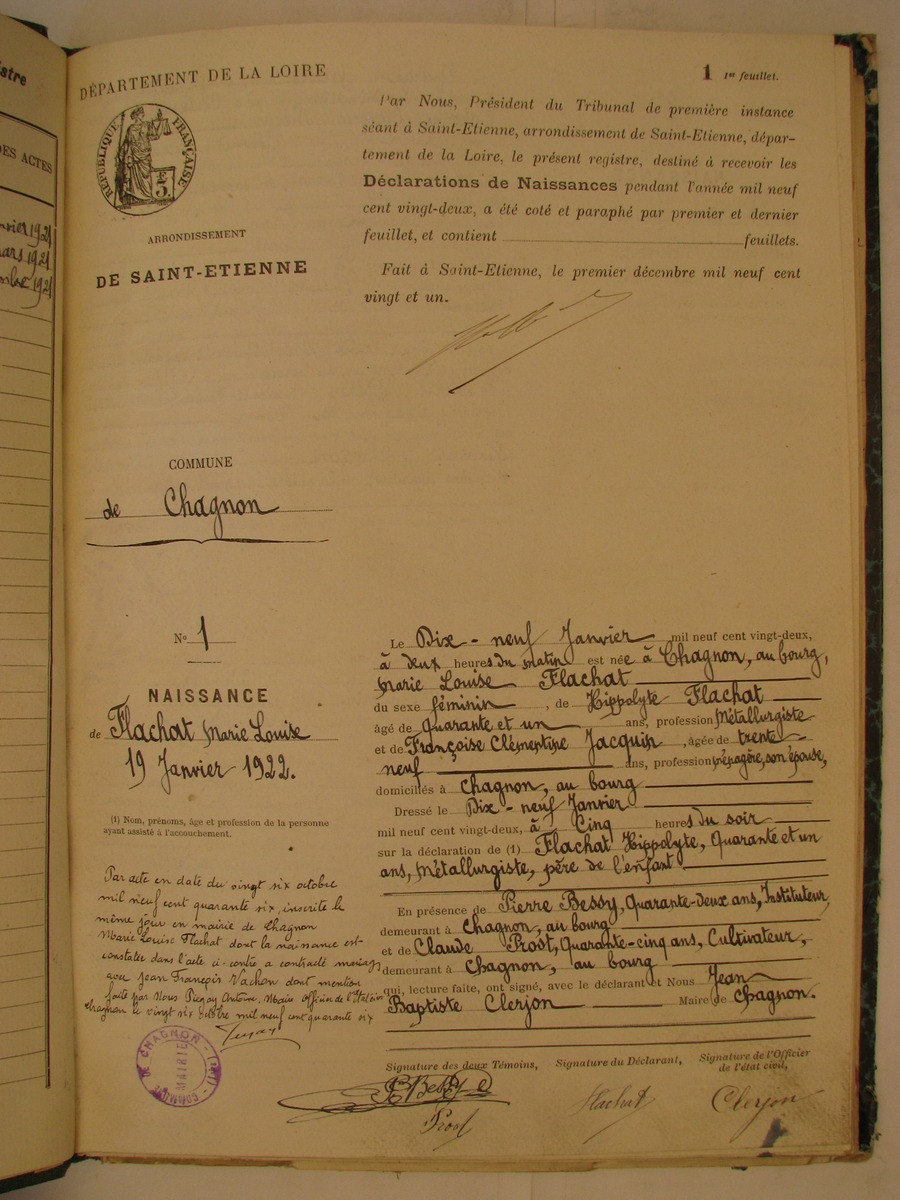 istre
DES ACTES
nvier 1921
mars 1921
mbre 1921
DÉPARTEMENT DE LA LOIRE
RÉPUBLIQUE FRANÇAISE
ARRONDISSEMENT
DE SAINT-ETIENNE
1 1er feuillet.
Par Nous, Président du Tribunal de première instance
séant à Saint-Etienne, arrondissement de Saint-Etienne, dépar-
tement de la Loire, le présent registre, destiné à recevoir les
Déclarations de Naissances pendant l'année mil neuf
cent vingt-deux, a été coté et paraphé par premier et dernier
feuillet, et contient feuillets.
Fait à Saint-Etienne, le premier décembre mil neuf cent
vingt et un.
COMMUNE
de Chagnon
No 1
NAISSANCE
de Flachat Marie Louise
19 Janvier 1922.
(1) Nom, prénoms, âge et profession de la personne
ayant assisté à l'accouchement.
Par acte en date du vingt six octobre
mil neuf cent quarante six, inscrite le
même jour en mairie de Chagnon
Marie Louise Flachat dont la naissance est
constatée dans l'acte ci-contre a contracté mariage
avec Jean François Vachon dont mention
faite par Nous Antoine, Maire Officier de l'Etat civil
Chagnon le vingt six octobre mil neuf cent quarante six
COMMUNE DE CHAGNON (LOIRE)
MAIRIE
Le Dix-neuf Janvier mil neuf cent vingt-deux,
à deux heures du matin est née à Chagnon, au bourg,
Marie Louise Flachat
du sexe féminin, de Hippolyte Flachat
âgé de Quarante et un ans, profession Métallurgiste
et de Françoise Clémentine Jacquin, âgée de trente-
neuf ans, profession ménagère, son épouse,
domiciliés à Chagnon, au bourg
Dressé le Dix-neuf Janvier
mil neuf cent vingt-deux, à Cinq heures du soir
sur la déclaration de (1) Flachat Hippolyte, Quarante et un
ans, Métallurgiste, père de l'enfant
En présence de Pierre Bessy, Quarante-deux ans, Instituteur,
demeurant à Chagnon, au bourg
et de Claude Prost, Quarante-cinq ans, Cultivateur,
demeurant à Chagnon, au bourg
qui, lecture faite, ont signé, avec le déclarant et Nous Jean
Baptiste Clerjon Maire de Chagnon.
Signature des deux Témoins,
Signature du Déclarant,
Signature de l'Officier
de l'état civil,
P. Bessy
Prost
Flachat
Clerjon